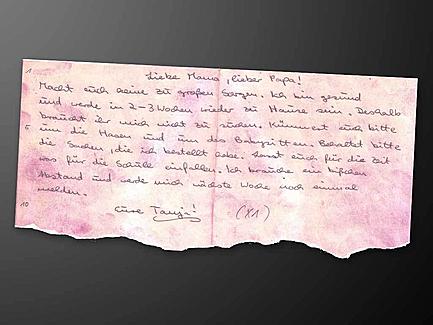 1 Liebe Mama, lieber Papa!
Macht euch keine zu großen Sorgen. Ich bin gesund
und werde in 2-3 Wochen wieder zu Hause sein. Deshalb
braucht ihr mich nicht zu suchen. Kümmert euch bitte
5 um die Hasen und um das Babysitten. Behaltet bitte
die Sachen, die ich bestellt habe. Lasst euch für die Zeit
was für die Schule einfallen. Ich brauche ein bißchen
Abstand und werde mich nächste Woche noch einmal
melden.
10 Eure Tanja! (X1)